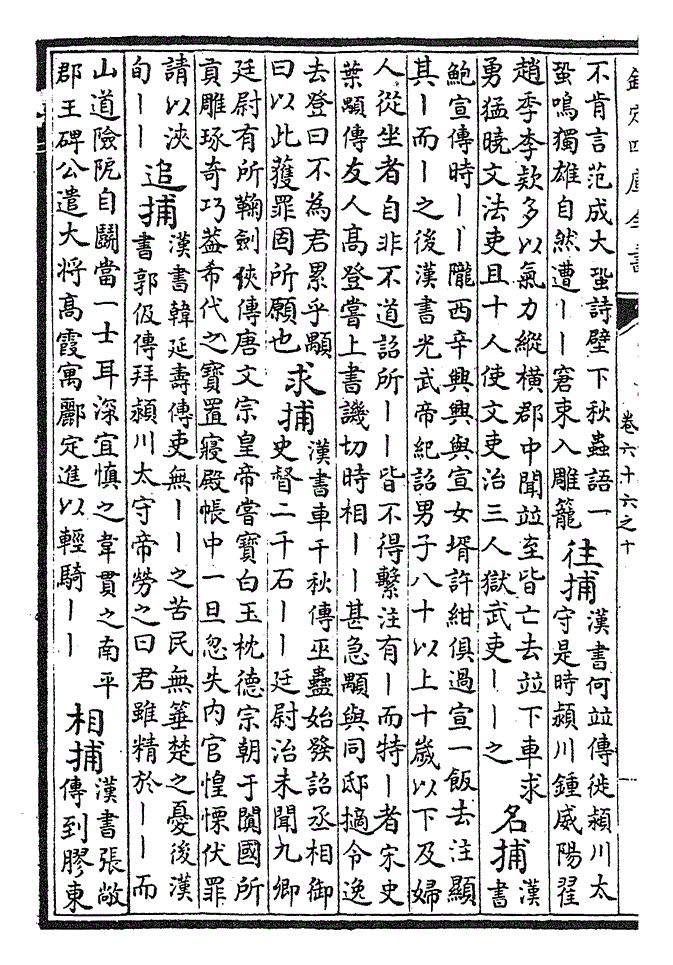 欽定四庫全書
卷六十六之十
不肯言范成大蛩詩壁下秋蟲語一
蛩鳴獨雄自然遭丨丨窘束入雕籠
往捕
漢書何竝傳徙潁川太
守是時潁川鍾威陽翟
趙季李欵多以氣力縱橫郡中聞竝至皆亡去竝下車求
勇猛曉文法吏且十人使文吏治三人獄武吏丨丨之
名捕
漢
書
鮑宣傳時丨丨隴西辛興興與宣女壻許紺俱過宣一飯去注顯
其丨而丨之後漢書光武帝紀詔男子八十以上十歲以下及婦
人從坐者自非不道詔所丨丨皆不得繫注有丨而特丨者宋史
葉顒傳友人髙登嘗上書譏切時相丨丨甚急顒與同邸擿令逸
去登曰不為君累乎顒
曰以此獲罪固所願也
求捕
漢書車千秋傳巫蠱始發詔丞相御
史督二千石丨丨廷尉治未聞九卿
廷尉有所鞫劍俠傳唐文宗皇帝嘗寶白玉枕德宗朝于闐國所
貢雕琢奇巧葢希代之寶置寢殿帳中一旦忽失内官惶慄伏罪
請以浹
旬丨丨
追捕
漢書韓延壽傳吏無丨丨之苦民無箠楚之憂後漢
書郭伋傳拜潁川太守帝勞之曰君雖精於丨丨而
山道險阨自鬬當一士耳深宜慎之韋貫之南平
郡王碑公遣大将髙霞寓酈定進以輕騎丨丨
相捕
漢書張敞
傳到膠東